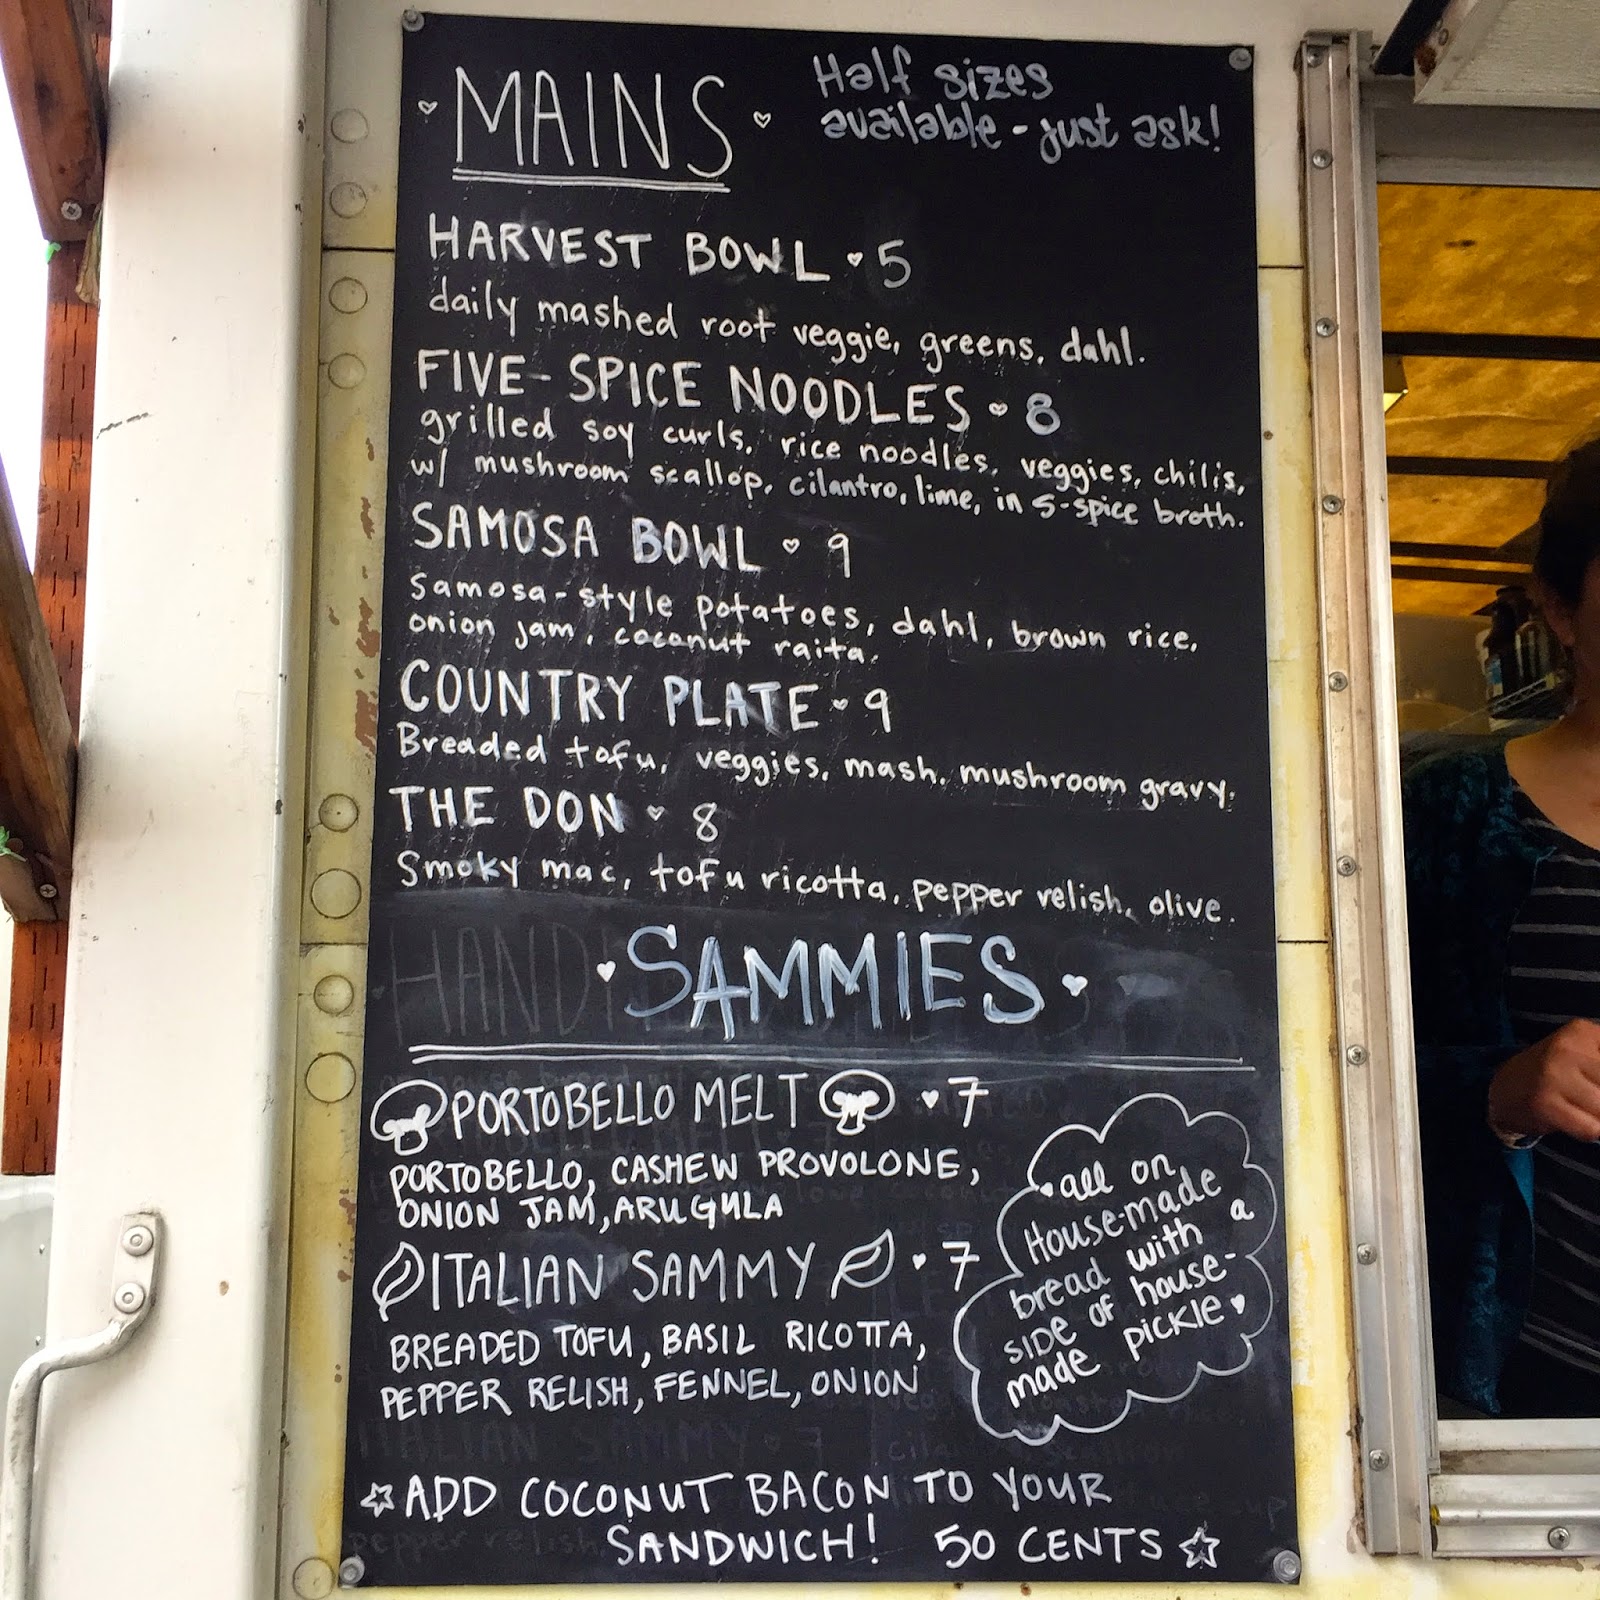 MAINS
Half sizes
available - just ask!
HARVEST BOWL 5
daily mashed root veggie, greens, dahl.
FIVE-SPICE NOODLES 8
grilled soy curls, rice noodles, veggies, chilis,
w/ mushroom scallop, cilantro, lime, in 5-spice broth.
SAMOSA BOWL 9
Samosa-style potatoes, dahl, brown rice,
onion jam, coconut raita.
COUNTRY PLATE 9
Breaded tofu, veggies, mash, mushroom gravy.
THE DON 8
Smoky mac, tofu ricotta, pepper relish, olive.
SAMMIES
PORTOBELLO MELT 7
PORTOBELLO, CASHEW PROVOLONE,
ONION JAM, ARUGULA
ITALIAN SAMMY 7
BREADED TOFU, BASIL RICOTTA,
PEPPER RELISH, FENNEL, ONION
all on
House-made
bread with a
side of house-
made pickle
ADD COCONUT BACON TO YOUR
SANDWICH! 50 CENTS